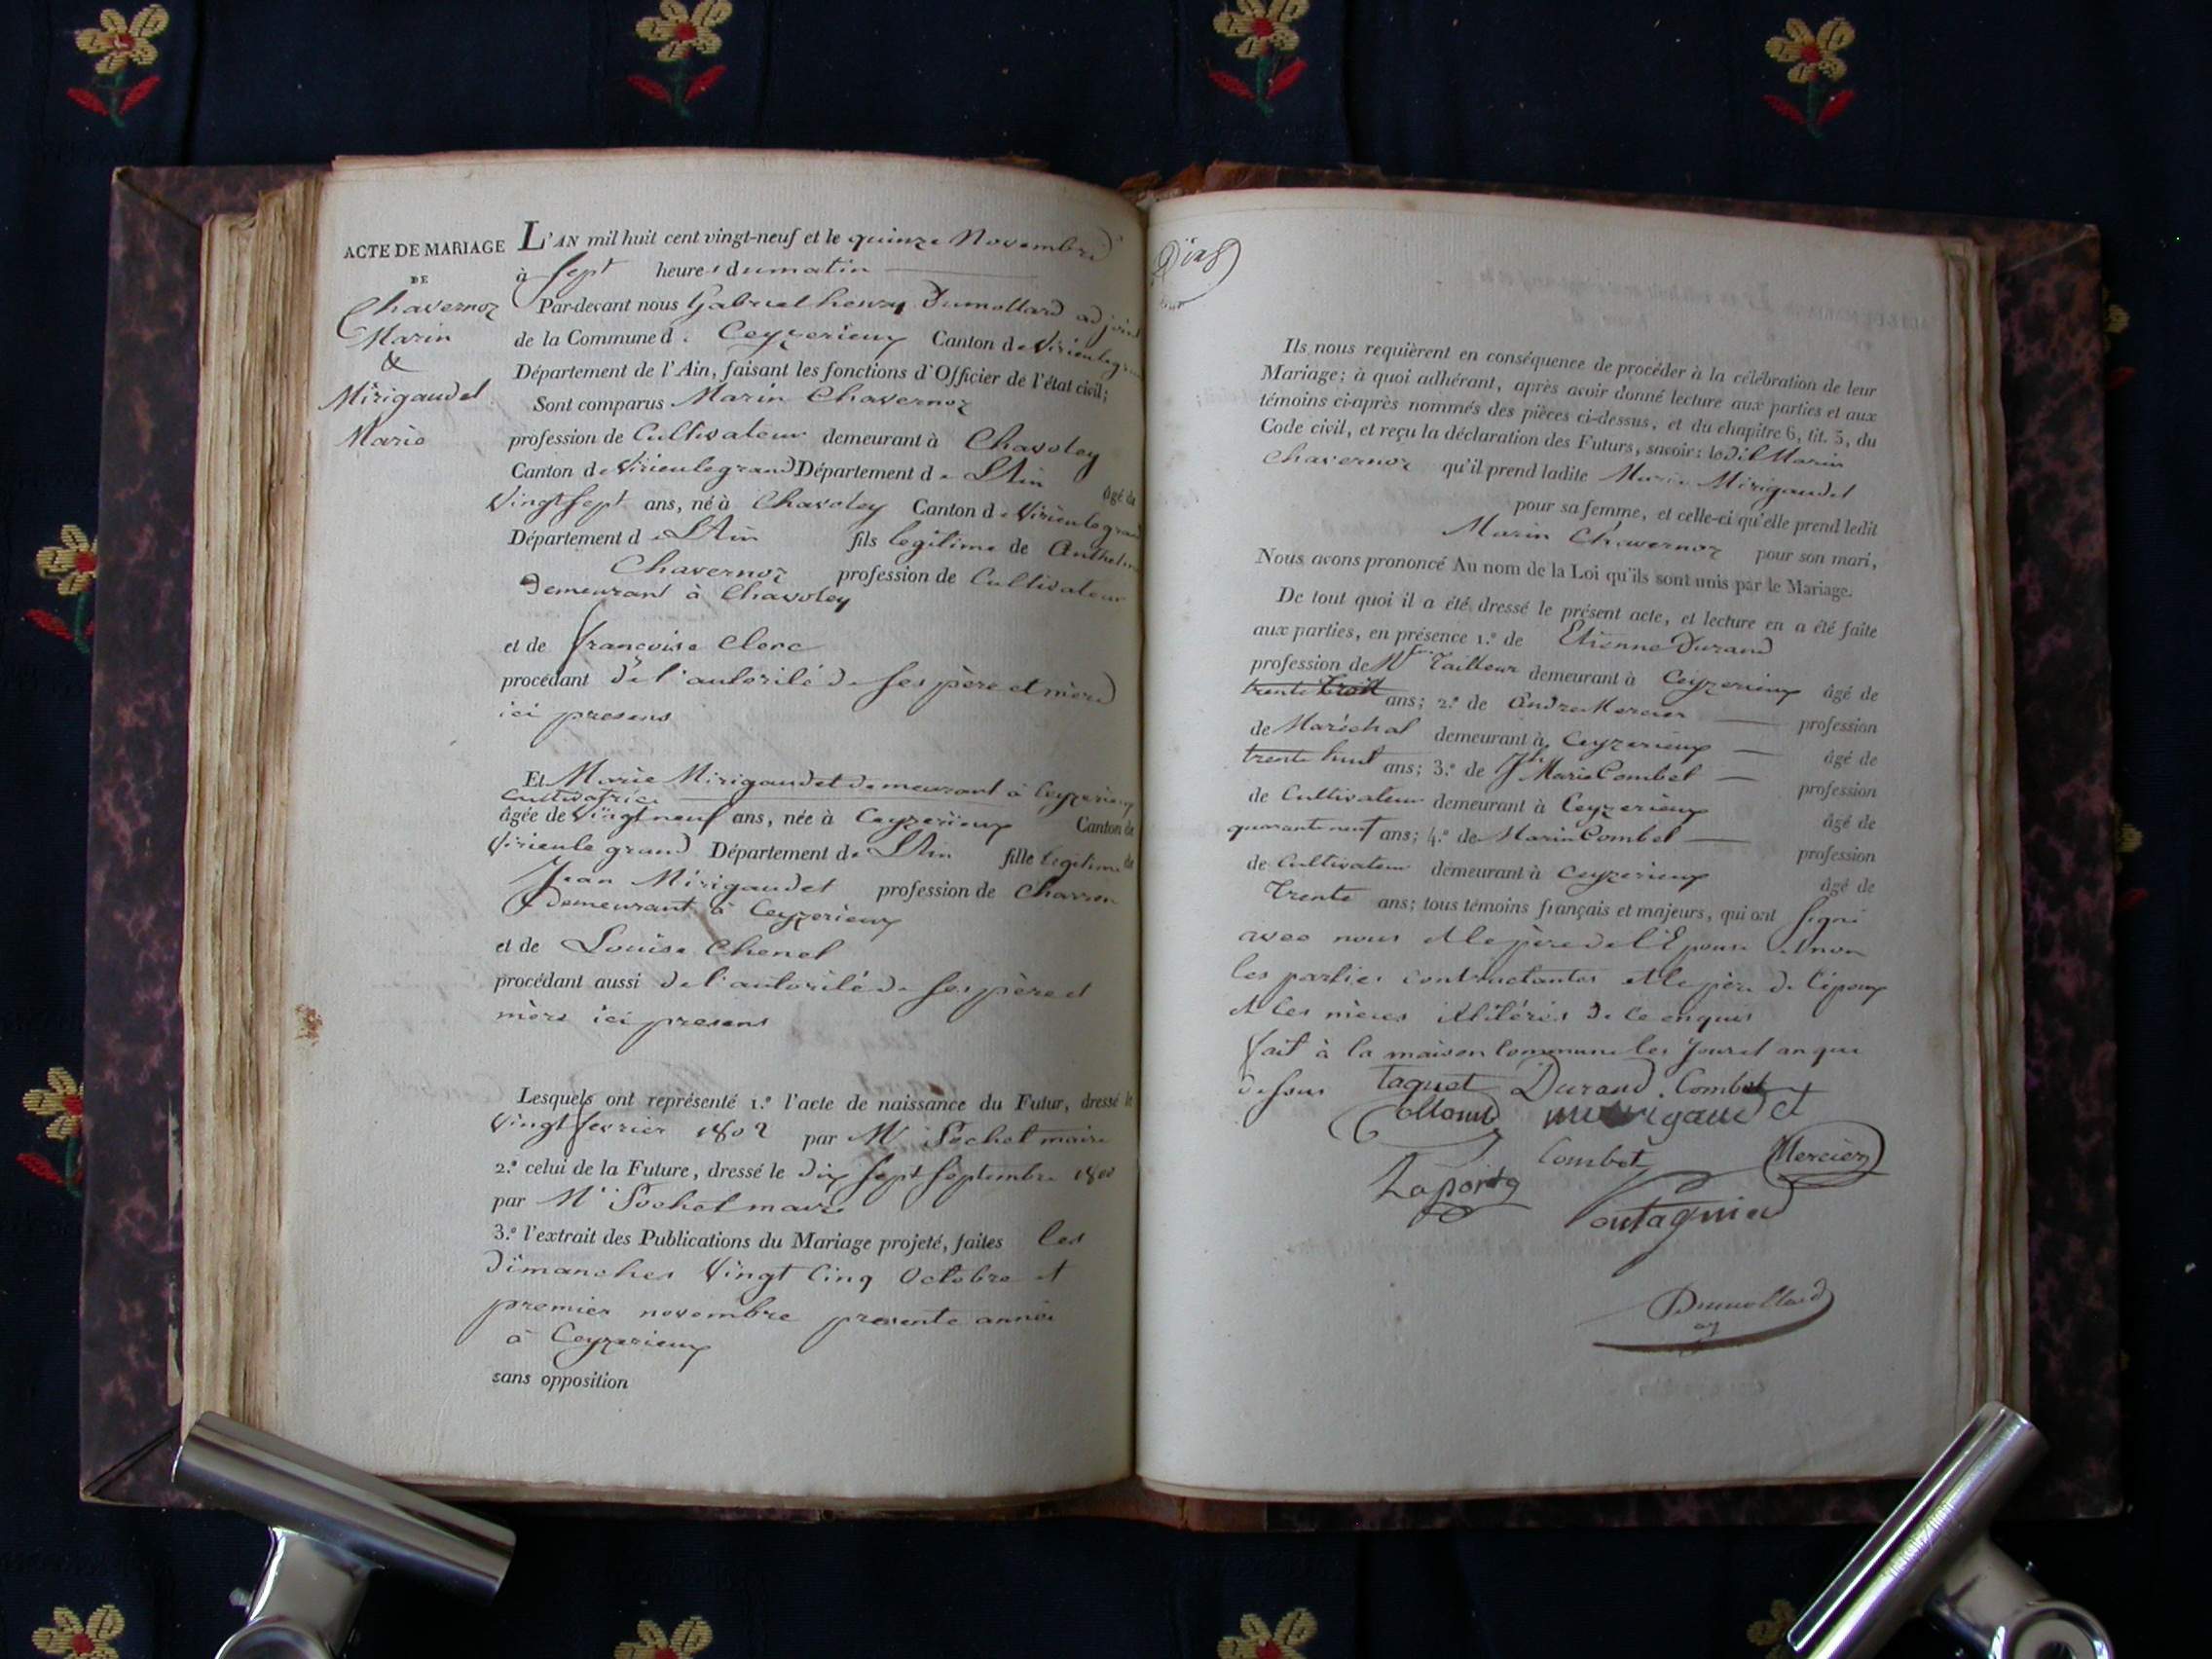 ACTE DE MARIAGE
DE
Chavernoz
Marin
&
Mirigaudet
Marie
L'AN mil huit cent vingt-neuf et le quinze Novembre
à Sept heures du matin
Par-devant nous Gabriel henry Dumollard adjoint
de la Commune de Ceyzerieux Canton de Virieulegrand
Département de l'Ain, faisant les fonctions d'Officier de l'état civil;
Sont comparus Marin Chavernoz
profession de Cultivateur demeurant à Chavoley
Canton de Virieulegrand Département de L'Ain âgé de
Vingt Sept ans, né à Chavoley Canton de Virieulegrand
Département de L'Ain fils legitime de Anthelme
Chavernoz profession de Cultivateur
Demeurant à Chavoley
et de francoise Clerc
procédant de l'autorité de Ses père et mère
ici presens
Et Marie Mirigaudet demeurant à Ceyzerieux
Cultivatrice
âgée de Vingt neuf ans, née à Ceyzerieux Canton de
Virieule grand Département de L'Ain fille legitime de
Jean Mirigaudet profession de Charron
Demeurant à Ceyzerieux
et de Louise Chenel
procédant aussi de l'autorité de Ses père et
mère ici presens
Lesquels ont représenté 1.º l'acte de naissance du Futur, dressé le
Vingt fevrier 1802 par Mr Sochet maire
2.º celui de la Future, dressé le dix Sept Septembre 1800
par Mr Sochet maire
3.º l'extrait des Publications du Mariage projeté, faites les
Dimanches Vingt Cinq Octobre et
premier novembre presente année
à Ceyzerieux
sans opposition
Ils nous requièrent en conséquence de procéder à la célébration de leur
Mariage; à quoi adhérant, après avoir donné lecture aux parties et aux
témoins ci-après nommés des pièces ci-dessus, et du chapitre 6, tit. 5, du
Code civil, et reçu la déclaration des Futurs, savoir: ledit Marin
Chavernoz qu'il prend ladite Marie Mirigaudet
pour sa femme, et celle-ci qu'elle prend ledit
Marin Chavernoz pour son mari,
Nous avons prononcé Au nom de la Loi qu'ils sont unis par le Mariage.
De tout quoi il a été dressé le présent acte, et lecture en a été faite
aux parties, en présence 1.º de Etienne Durand
profession de Tailleur demeurant à Ceyzerieux âgé de
trente trois ans; 2.º de André Mercier profession
de Maréchal demeurant à Ceyzerieux âgé de
trente huit ans; 3.º de Jh Marie Combet profession
de Cultivateur demeurant à Ceyzerieux âgé de
quarante neuf ans; 4.º de Marin Combet profession
de Cultivateur demeurant à Ceyzerieux âgé de
Trente ans; tous témoins français et majeurs, qui ont Signé
avec nous et le père de l'Epouse et non
les parties contractantes et le père de l'époux
et les mères illitérés de ce enquis
fait à la maison Commune les Jour et an que
dessus Taquet Durand Combet
Collomb mirigaudet
Combet Mercier
Laporte
Pontagnier
Dumollard
adj